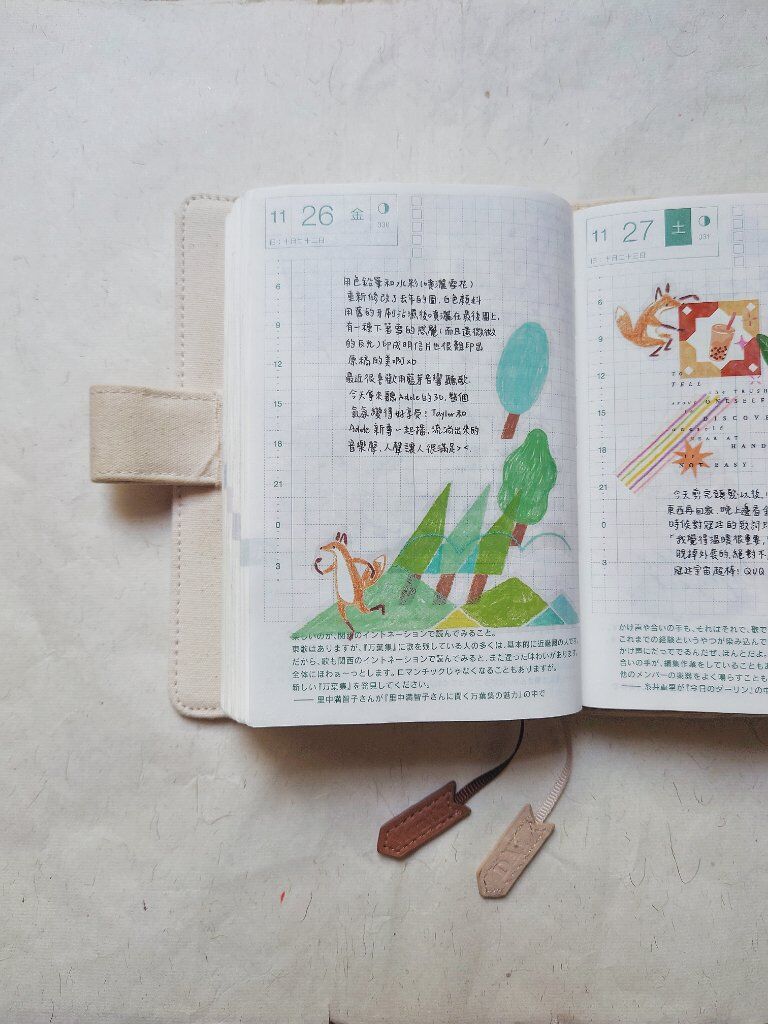 11 26 金
330
旧:十月二十二日
6
9
12
15
18
21
0
3
用色鉛筆和水彩(噴灑雪花)
重新修改了去年的圖,白色顏料
用舊的牙刷沾濕後噴灑在最後圖上,
有一種下著雪的感覺(而且還微微
的反光)印成明信片也很難印出
原稿的美啊xD
最近很喜歡用藍芽音響聽歌
今天拿來聽Adele的30,整個
氣氛變得好享受!Taylor和
Adele新專一起播,流淌出來的
音樂聲、人聲讓人很滿足><
楽しいのが、関西のイントネーションで読んでみること。
東歌はありますが、『万葉集』に歌を残している人の多くは、基本的に近畿圏の人です。
だから、歌も関西のイントネーションで読んでみると、また違った味わいがあります。
全体にほわぁーっとします。ロマンチックじゃなくなることもありますが。
新しい『万葉集』を発見してください。
—— 里中満智子さんが『里中満智子さんに聞く万葉集の魅力』の中で
11 27 土
331
旧:十月二十三日
6
9
12
15
18
21
0
3
TO
TELL
THE TRUSH
ONESELF
DISCOVE
oneself
NEAR AT
HAND
IS
NOT EASY.
今天剪完頭髮以後,
東西再回家,晚上邊看金
時候對冠廷的致詞
「我覺得溫暖很重要,
脫掉外套的,絕對不
冠廷宇宙超棒!QUQ
かけ声や合いの手も、それはそれで、歌で
これまでの経験というやつが染み込んで
かけ声にだってでるんだぜ、ほんとだよ。
合いの手が、編集作業をしていることもあ
他のメンバーの楽器をよく鳴らすことも
—— 糸井重里が『今日のダーリン』の中